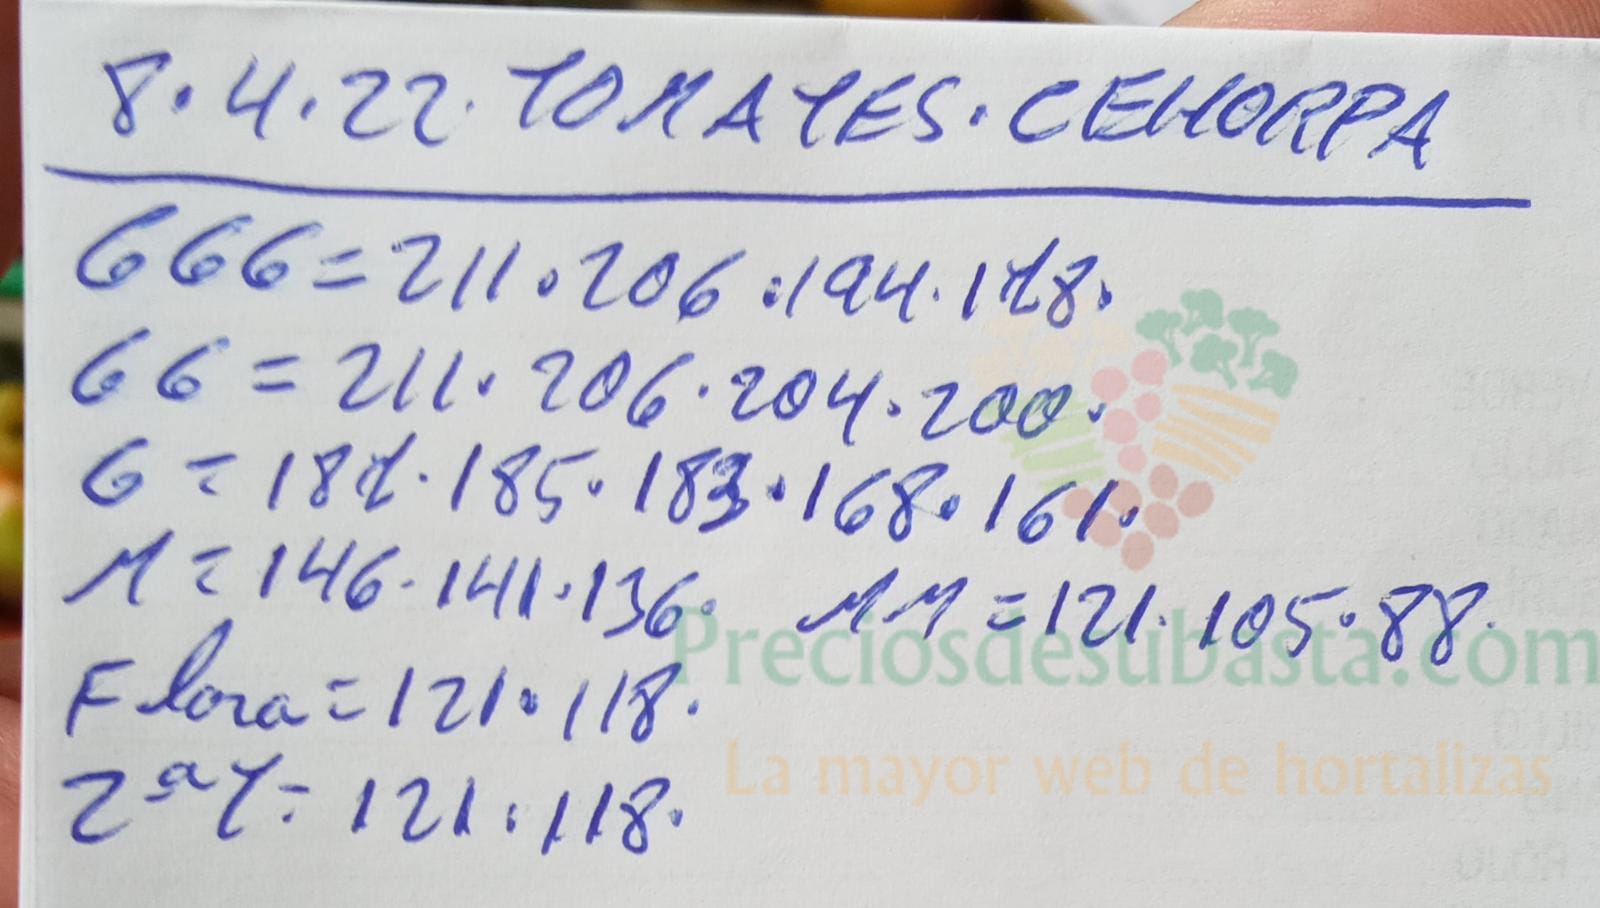 8.4.22. TOMATES. CEHORPA
GGG = 211. 206. 194. 178.
GG = 211. 206. 204. 200.
G = 187. 185. 183. 168. 161.
M = 146. 141. 136. MM = 121. 105. 88.
Flora = 121. 118.
2ª T = 121. 118.
Preciosdesubasta.com
La mayor web de hortalizas